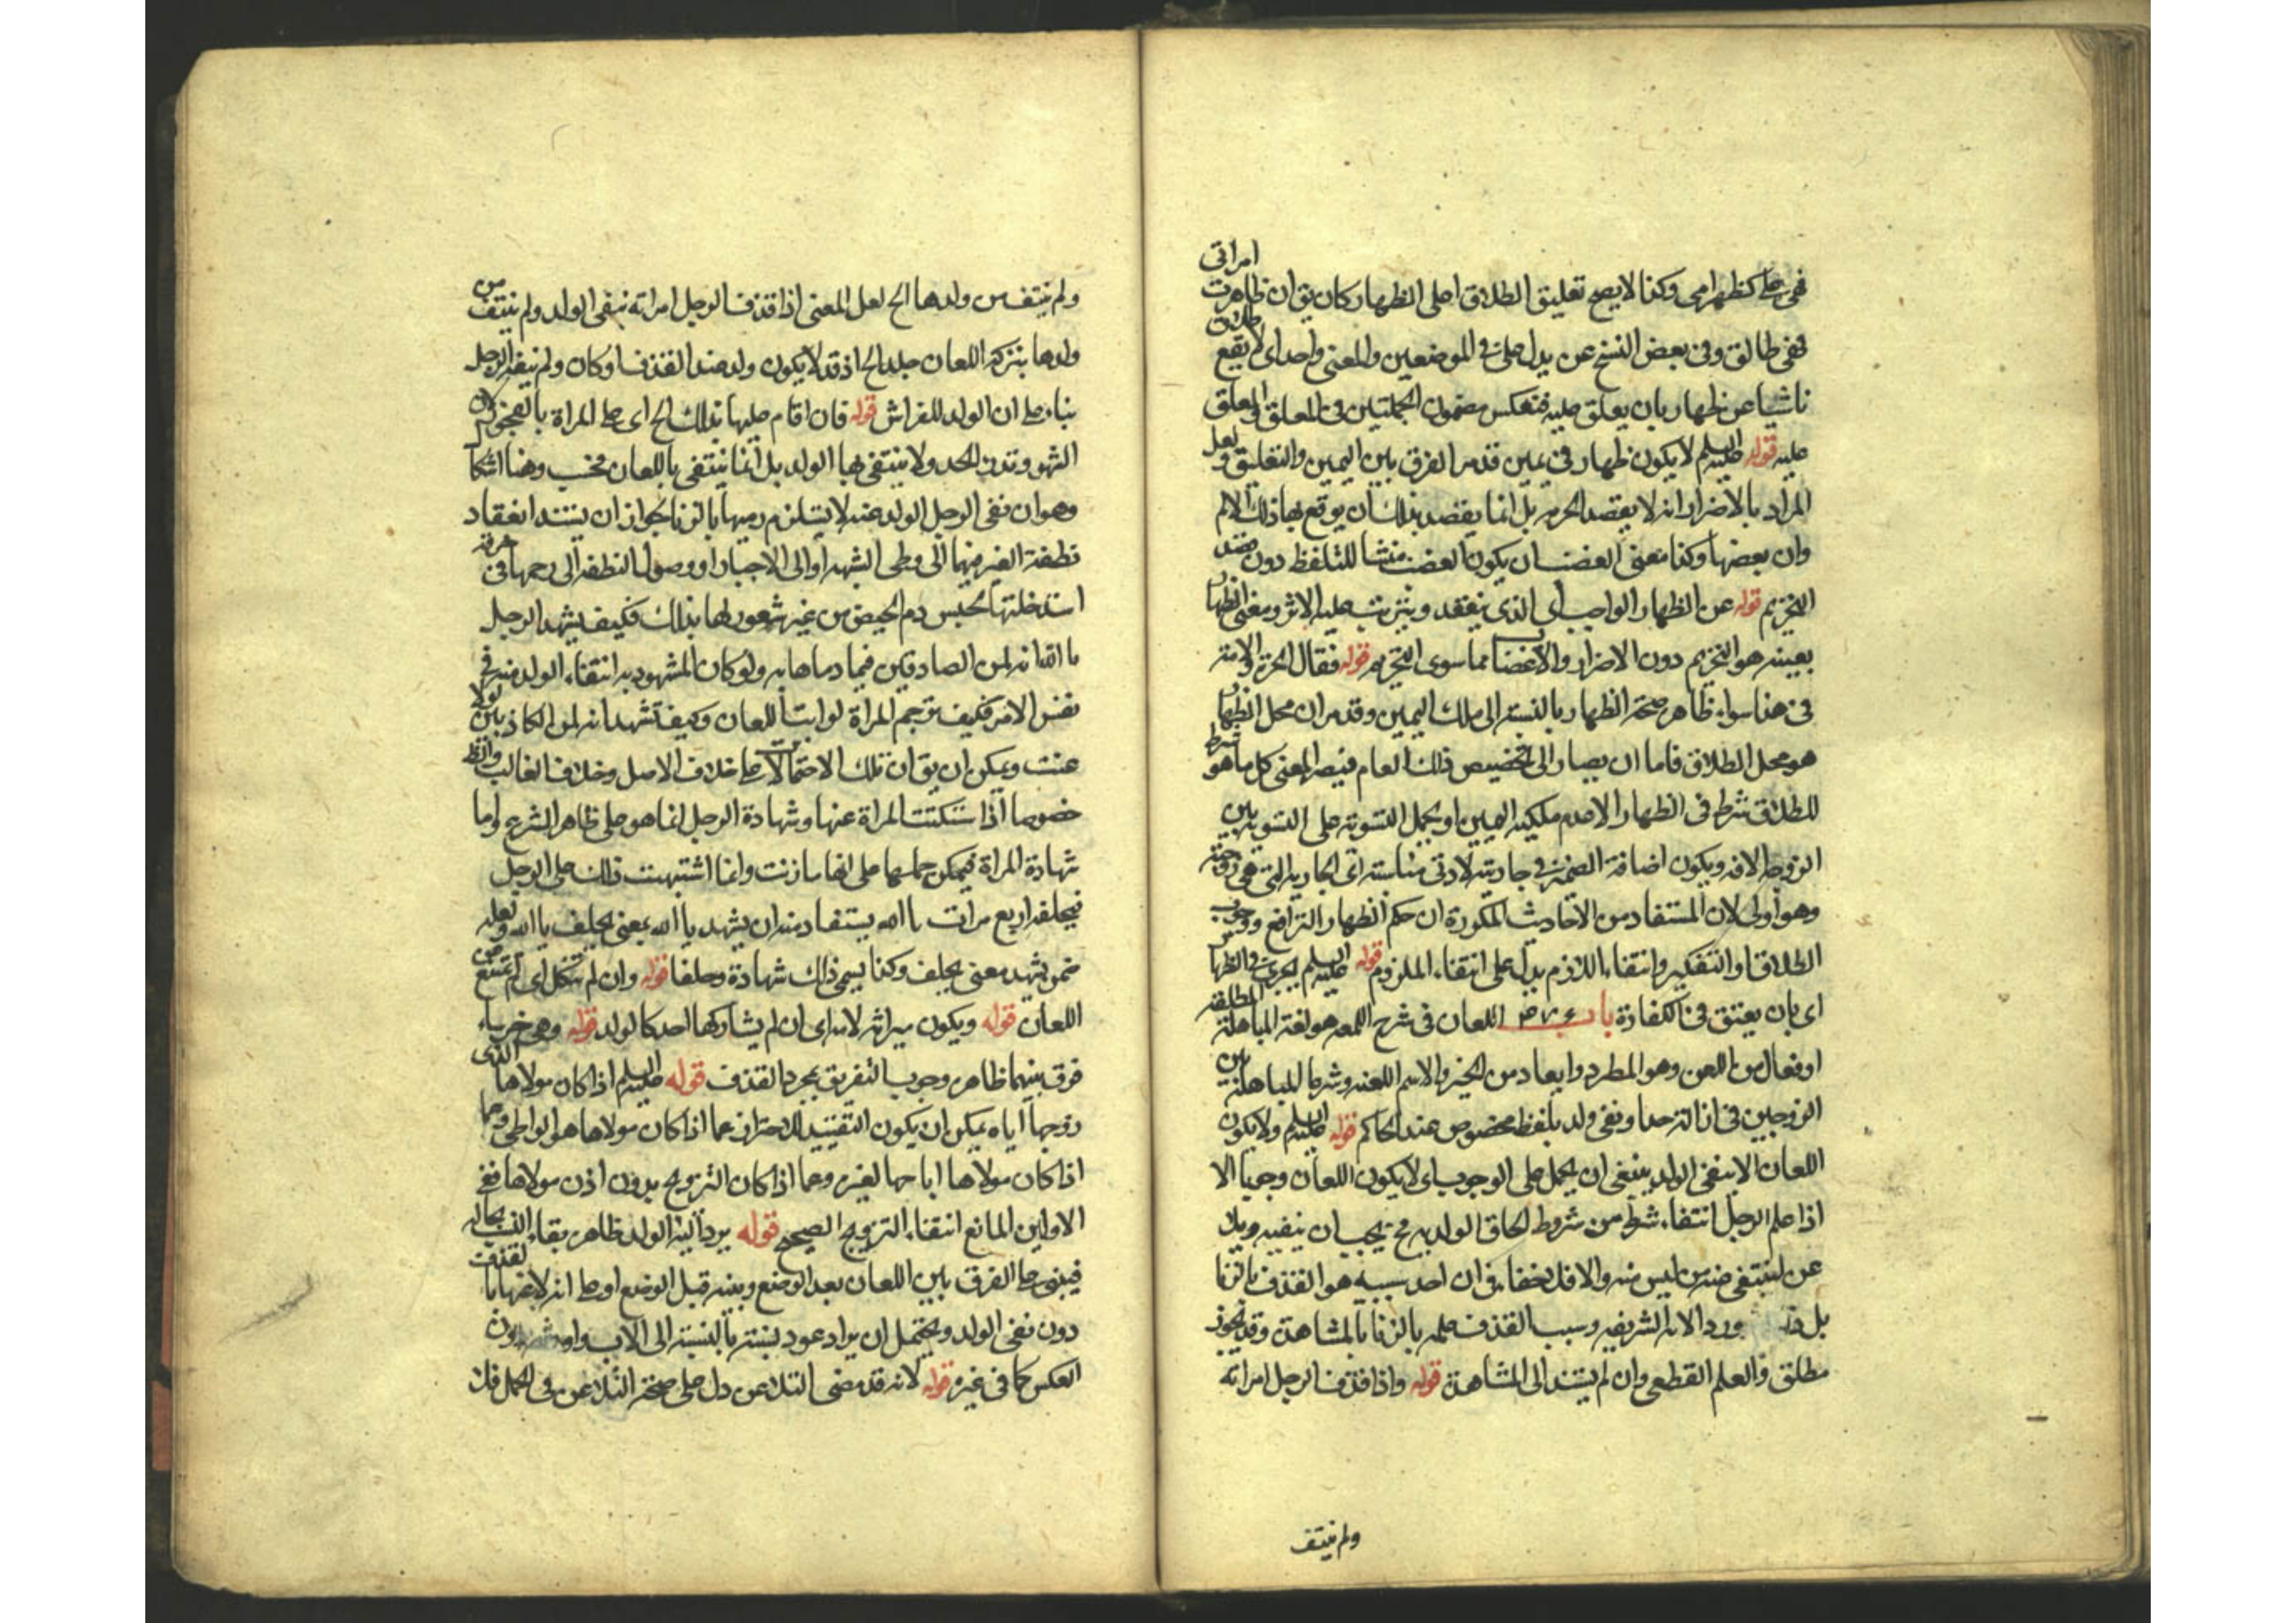 فهی علی کظهر امی وکذا لا یصح تعلیق الطلاق علی الظهار کان یق ان ظاهرت امراتی
فهی طالق وفی بعض النسخ عن بدل علی فی الموضعین والمعنی واحد ای لا یقع طلاق
ناشیا عن ظهار بان یعلق علیه فتعکس مضمون الجملتین فی المعلق والمعلق
علیه قوله علیه السلم لا یکون ظهار فی یمین قد مر الفرق بین الیمین والتعلیق ولعل
المراد بالاضرار انه لا یقصد الحرمه بل انما یقصد بذلک ان یوقع بها ذلک الالم
وان بعضها وکذا معنی الغضب ان یکون الغضب منشا للتلفظ دون قصد
التحریم قوله عن الظهار الواجب ای الذی ینعقد ویترتب علیه الاثر ومعنی الظهار
بعینه هو التحریم دون الاضرار والاغضاب مما سوی التحریم قوله فقال الحرة والامة
فی هذا سواء ظاهر صحة الظهار بالنسبة الی ملک الیمین وقد مر ان محل الظهار
هو محل الطلاق فاما ان یصار الی تخصیص ذلک العام فیصیر المعنی کل ما هو شرط
للطلاق شرط فی الظهار الا عدم ملکیه الیمین او یحمل التسویة علی التسویة بین
الزوجة الامة ویکون اضافة الضمیر فی جاریته لادنی مناسبة ای الجاریة التی هی زوجته
وهو اولی لان المستفاد من الاحادیث المذکورة ان حکم الظهار الترافع ووجوب
الطلاق او التکفیر وانتفاء اللازم یدل علی انتفاء الملزوم قوله علیه السلم یجری فی الظهار
ای بان یعتق فی الکفارة باب اللعان فی شرح اللمعه هو لغة المباهلة المطلقة
او فعال من اللعن وهو المطرد وابعاد من الخیر والاسم اللعنه وشرعا المباهلة بین
الزوجین فی ازالة حد او نفی ولد بلفظ مخصوص عند الحاکم قوله علیه السلم ولا یکون
اللعان الا بنفی الولد ینبغی ان یحمل علی الوجوب ای لا یکون اللعان وجبا الا
اذا علم الرجل انتفاء شرط من شروط لحاق الولد به فح یجب ان ینفیه
عن لینتفی عنه من لیس منه والا فلا خفاء فی ان احد سببیه هو القذف بالزنا
بل ورد الآیة الشریفه وسبب القذف علمه بالزنا بالمشاهدة وقد یجوز
مطلق والعلم القطعی وان لم یستند الی المشاهدة قوله واذا قذف الرجل امراته
ولم ینتف
ولم ینتف من ولدها الخ لعل المعنی اذا قذف الرجل امراته بنفی الولد ولم ینتف من
ولدها بترکه اللعان جلد الخ اذ قد لا یکون ولد عند القذف او کان ولم ینفه الرجل
بناء علی ان الولد للفراش قوله فان اقام علیها بذلک الخ ای علی المراة بالفجور لان
الشهود تدرء الحد ولا ینتفی بها الولد بل انما ینتفی باللعان فحسب وهنا اشکال
وهو ان نفی الرجل الولد عنه لا یستلزم رمیها بالزنا لجواز ان یستند انعقاد
نطفة الغیر فیها الی وطی الشبهه او الی الاجبار او وصول النطفه الی رحمها فی خرقة
استدخلتها لحبس دم الحیض من غیر شعور لها بذلک فکیف یشهد الرجل
بالله انه لمن الصادقین فیما رماها به ولو کان المشهود به انتفاء الولد منه فی
نفس الامر فکیف ترجم المراة لو ابت اللعان وکیف تشهد انه لمن الکاذبین لولا
عنت ویمکن ان یق ان تلک الاحتمالات علی خلاف الاصل وخلاف الغالب والظ
خصوصا اذا سکتت المراة عنها وشهادة الرجل انما هو علی ظاهر الشرع واما
شهادة المراة فیمکن حملها علی انها ما زنت وانما اشتبهت ذلک علی الرجل
فیحلفه اربع مرات بالله یستفاد منه ان یشهد بالله بمعنی یحلف بالله ولعله
ضمن یشهد معنی یحلف وکذا یسمی ذلک شهادة وحلفا قوله وان لم تنکل ای لم تمتنع من
اللعان قوله ویکون میراثه لامه ای ان لم یشارکها احد کالولد قوله وهی خرساء
فرق بینهما ظاهر وجوب التفریق بمجرد القذف قوله علیه السلم اذا کان مولاها الذی
زوجها ایاه یمکن ان یکون التقیید للاحتراز عما اذا کان مولاها هو الواطی وعما
اذا کان مولاها اباحها لغیره وعما اذا کان التزویج بدون اذن مولاها ففی
الاولین المانع انتفاء التزویج الصحیح قوله یرد الیه الولد ظاهر بقاء النسب بحاله
فیبنی علی الفرق بین اللعان بعد الوضع وبینه قبل الوضع او علی انه لاعنها بالقذف
دون نفی الولد ویحتمل ان یراد عود نسبته بالنسبة الی الاب دون
العکس کما فی غیره قوله لانه قد مضی التلاعن دل علی صحة التلاعن فی الحمل فلا